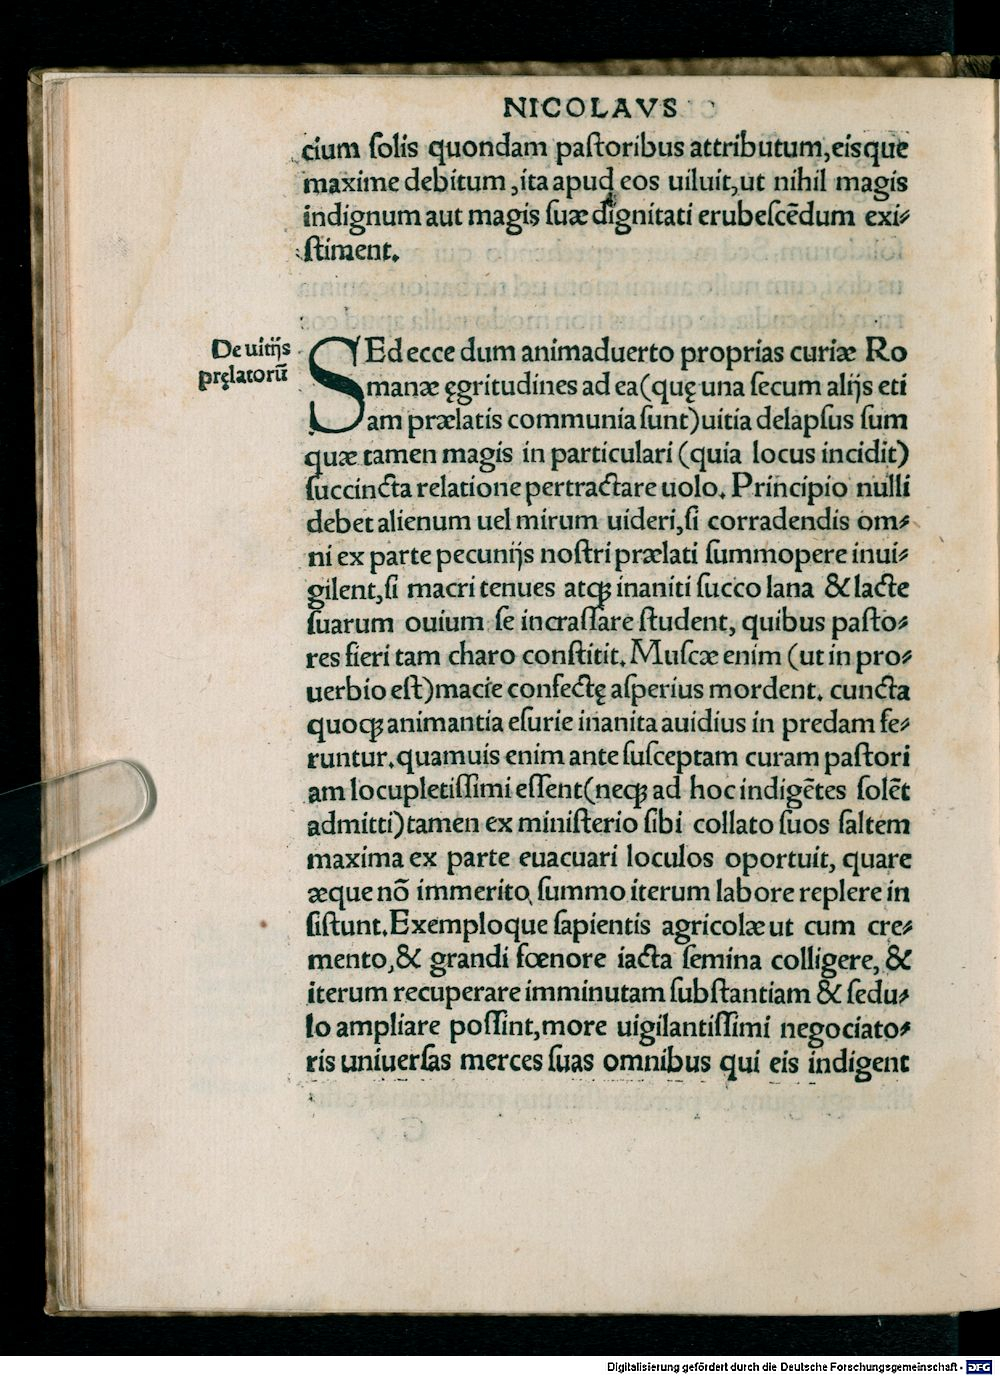 NICOLAVS
cium ſolis quondam paſtoribus attributum, eisque
maxime debitum, ita apud eos uiluit, ut nihil magis
indignum aut magis ſuæ dignitati erubeſcēdum exi⸗
ſtiment.
De uitijs
pręlatorū
SEd ecce dum animaduerto proprias curiæ Ro
manæ ęgritudines ad ea (quę una ſecum alijs eti
am prælatis communia ſunt) uitia delapſus ſum
quæ tamen magis in particulari (quia locus incidit)
ſuccincta relatione pertractare uolo. Principio nulli
debet alienum uel mirum uideri, ſi corradendis om⸗
ni ex parte pecunijs noſtri prælati ſummopere inui⸗
gilent, ſi macri tenues atqꝫ inaniti ſucco lana & lacte
ſuarum ouium ſe incraſſare ſtudent, quibus paſto⸗
res fieri tam charo conſtitit. Muſcæ enim (ut in pro⸗
uerbio eſt) macie confectę aſperius mordent. cuncta
quoqꝫ animantia eſurie inanita auidius in predam fe⸗
runtur. quamuis enim ante ſuſceptam curam paſtori
am locupletiſſimi eſſent (neqꝫ ad hoc indigētes ſolēt
admitti) tamen ex miniſterio ſibi collato ſuos ſaltem
maxima ex parte euacuari loculos oportuit, quare
æque nō immerito ſummo iterum labore replere in
ſiſtunt. Exemploque ſapientis agricolæ ut cum cre⸗
mento, & grandi fœnore iacta ſemina colligere, &
iterum recuperare imminutam ſubſtantiam & ſedu⸗
lo ampliare poſſint, more uigilantiſſimi negociato⸗
ris uniuerſas merces ſuas omnibus qui eis indigent
Digitalisierung gefördert durch die Deutsche Forschungsgemeinschaft - DFG